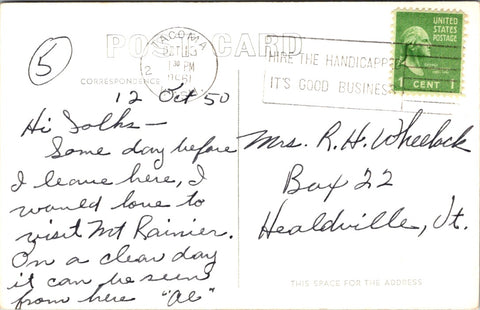 POST CARD
5
TACOMA
OCT 13
PM
2
HIRE THE HANDICAPPED
IT'S GOOD BUSINESS
UNITED
STATES
POSTAGE
1 CENT 1
CORRESPONDENCE
12 Oct 50
Hi Folks—
Some day before
I leave here, I
would love to
visit Mt Rainier.
On a clear day
it can be seen
from here "Al"
Mrs. R. H. Wheelock
Box 22
Healdville, Vt.
THIS SPACE FOR THE ADDRESS